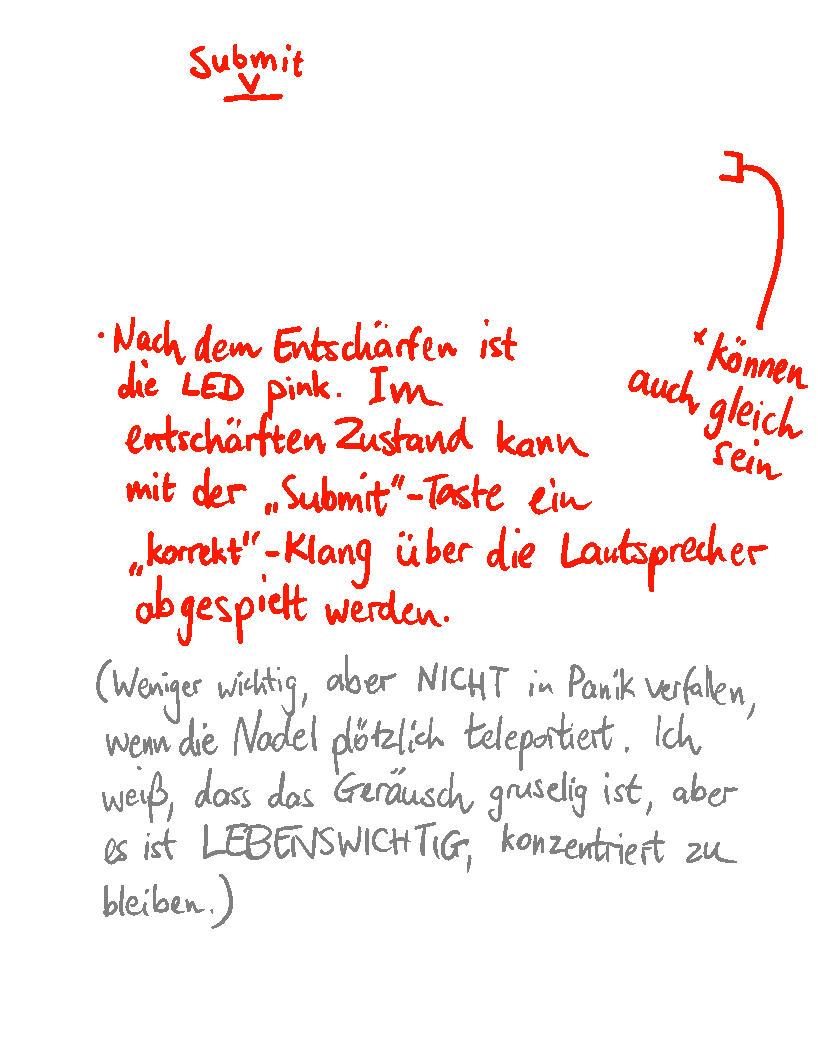 Submit
· Nach dem Entschärfen ist
die LED pink. Im
entschärften Zustand kann
mit der „Submit“-Taste ein
„korrekt“-Klang über die Lautsprecher
abgespielt werden.
*können
auch gleich
sein
(Weniger wichtig, aber NICHT in Panik verfallen,
wenn die Nadel plötzlich teleportiert. Ich
weiß, dass das Geräusch gruselig ist, aber
es ist LEBENSWICHTIG, konzentriert zu
bleiben.)